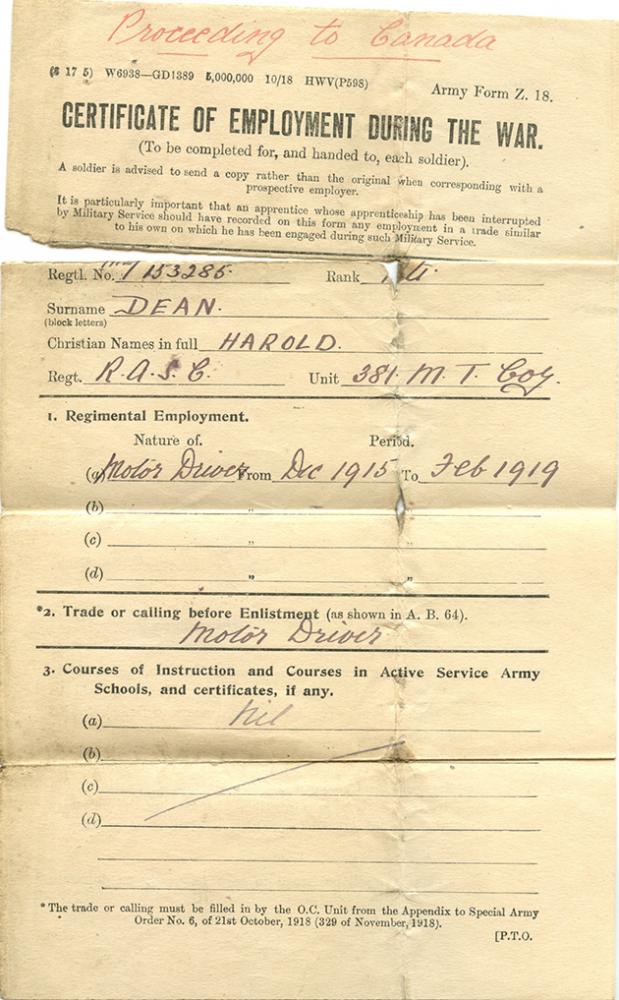 Proceeding to Canada
(6 17 5) W6938—GD1389 5,000,000 10/18 HWV(P598)
Army Form Z. 18.
CERTIFICATE OF EMPLOYMENT DURING THE WAR.
(To be completed for, and handed to, each soldier).
A soldier is advised to send a copy rather than the original when corresponding with a
prospective employer.
It is particularly important that an apprentice whose apprenticeship has been interrupted
by Military Service should have recorded on this form any employment in a trade similar
to his own on which he has been engaged during such Military Service.
Regtl. No. 153285 Rank
Surname DEAN.
(block letters)
Christian Names in full HAROLD.
Regt. R.A.S.C. Unit 381 M. T. Coy.
1. Regimental Employment.
Nature of. Period.
(a) Motor Driver From Dec 1915 To Feb 1919
(b) " "
(c) " "
(d) " "
*2. Trade or calling before Enlistment (as shown in A. B. 64).
Motor Driver
3. Courses of Instruction and Courses in Active Service Army
Schools, and certificates, if any.
(a) Nil
(b)
(c)
(d)
* The trade or calling must be filled in by the O.C. Unit from the Appendix to Special Army
Order No. 6, of 21st October, 1918 (329 of November, 1918).
[P.T.O.